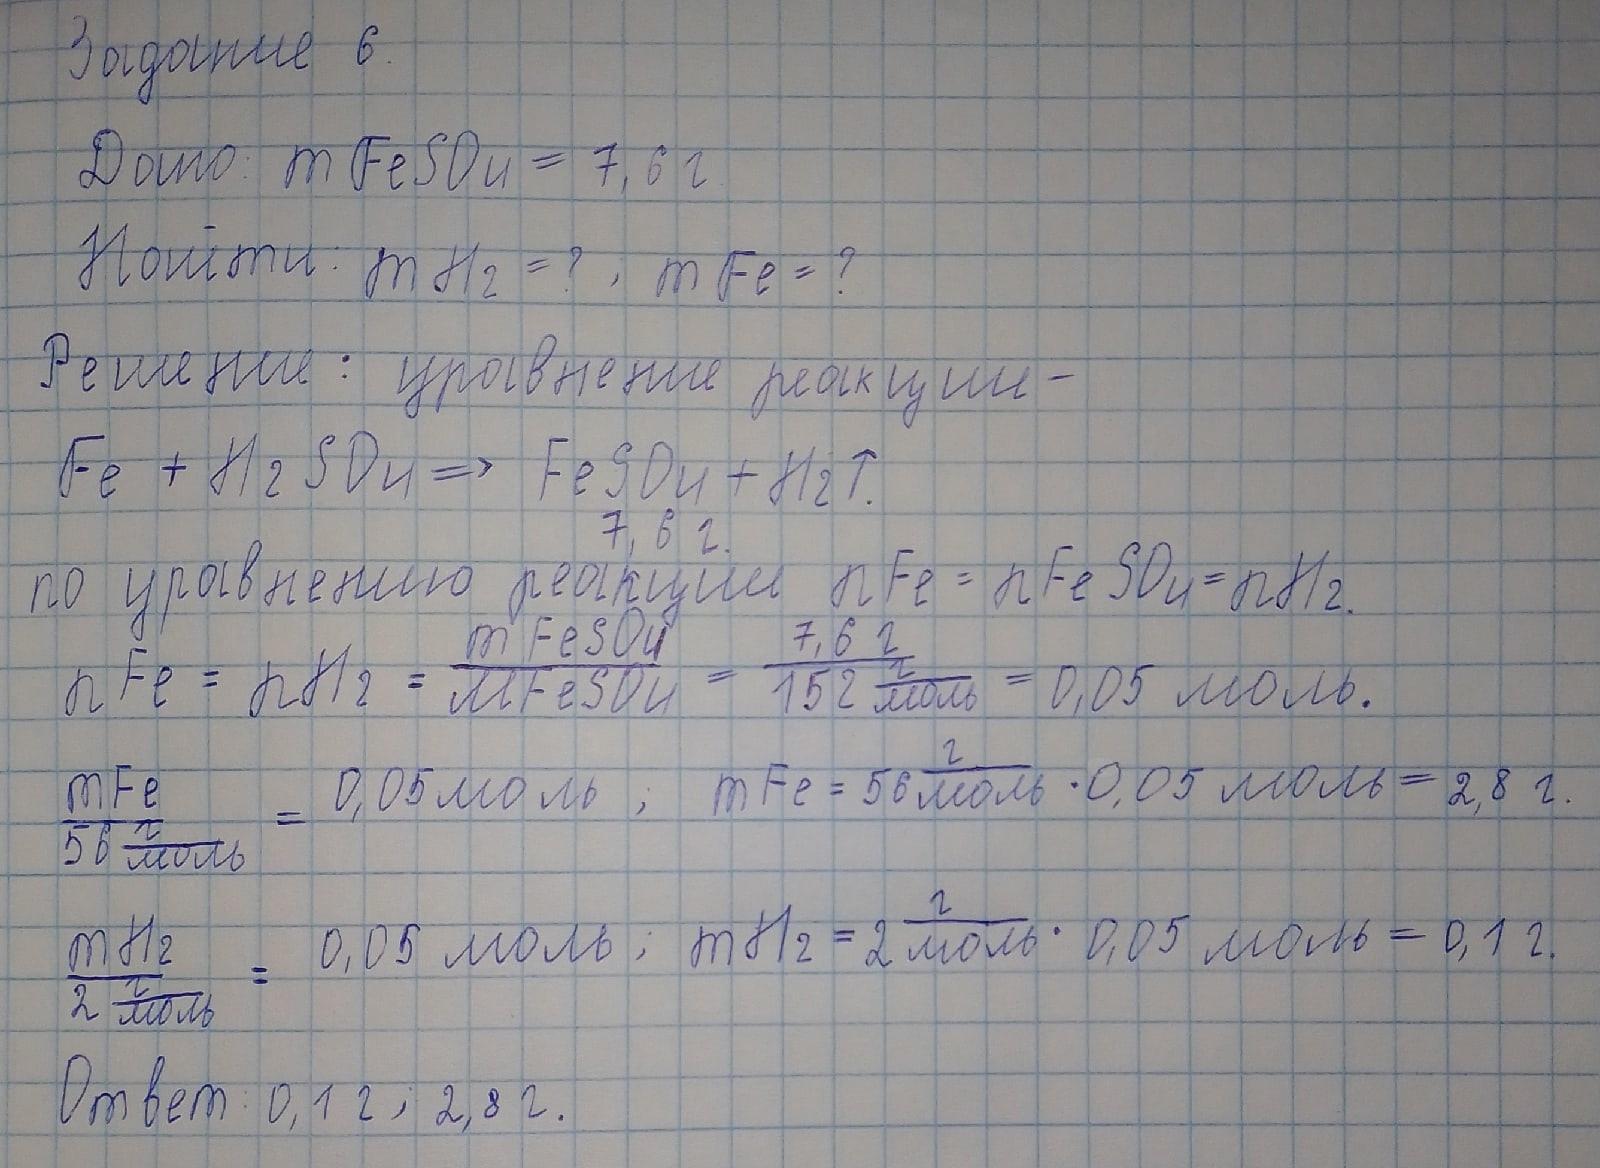 Задание 6.
Дано: m FeSO4 = 7,6 г
Найти: m H2 = ?, m Fe = ?
Решение: уравнение реакции -
Fe + H2SO4 => FeSO4 + H2↑.
7,6 г.
по уравнению реакции nFe = nFeSO4 = nH2.
nFe = nH2 = mFeSO4 / MFeSO4 = 7,6 г / 152 г/моль = 0,05 моль.
mFe / 56 г/моль = 0,05 моль; mFe = 56 г/моль · 0,05 моль = 2,8 г.
mH2 / 2 г/моль = 0,05 моль; mH2 = 2 г/моль · 0,05 моль = 0,1 г.
Ответ: 0,1 г; 2,8 г.